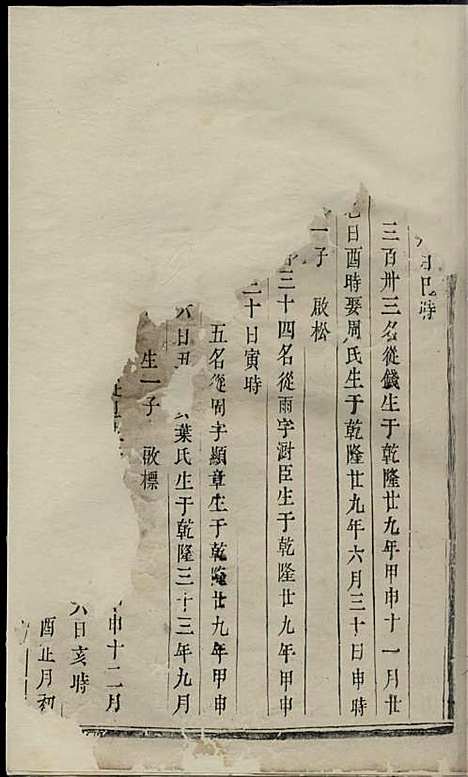 月巳時
三百卅三名從錢生于乾隆廿九年甲申十一月廿
七日酉時娶周氏生于乾隆廿九年六月三十日申時
一子 啟松
三十四名從雨字澍臣生于乾隆廿九年甲申
二十日寅時
五名從周字顯章生于乾隆廿九年甲申
六日丑 葉氏生于乾隆三十三年九月
生一子 啟標
申十二月
六日亥時
酉正月初